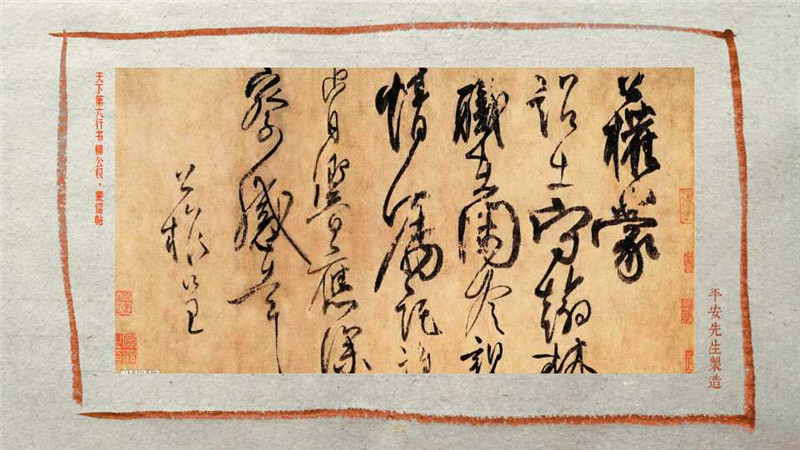 公權蒙
詔出守翰林
職在閑冷親
情囑託誰
肯響應深
察感幸
公權呈
天下第六行书 柳公权·蒙诏帖
平安先生製造